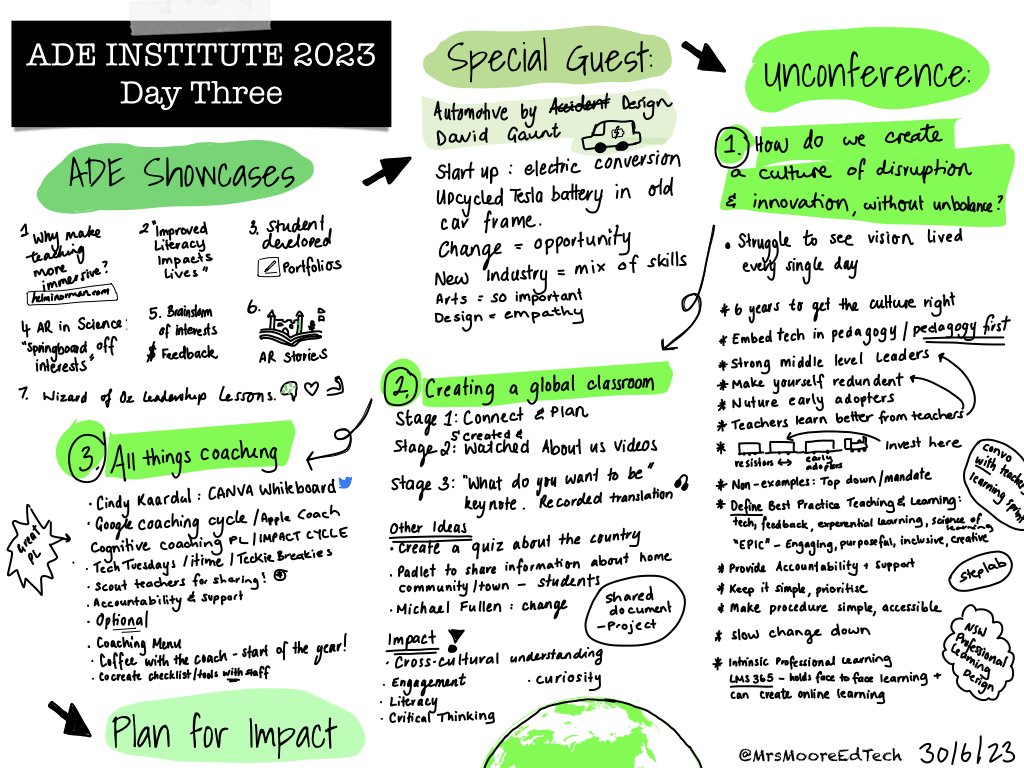 ADE INSTITUTE 2023
Day Three
ADE Showcases
1 Why make
teaching
more
immersive?
helminorman.com
2 "Improved
Literacy
Impacts
Lives"
3. Student
developed
Portfolios
4 AR in Science:
"Springboard off
interests"
5. Brainstorm
of interests
& Feedback
6.
AR Stories
7. Wizard of Oz Leadership Lessons.
Special Guest:
Automotive by Accident Design
David Gaunt
Start up : electric conversion
Upcycled Tesla battery in old
car frame.
Change = opportunity
New Industry = mix of skills
Arts = so important
Design = empathy
Unconference:
1. How do we create
a culture of disruption
& innovation, without unbalance?
• Struggle to see vision lived
every single day
* 6 years to get the culture right
* Embed tech in pedagogy / pedagogy first
* Strong middle level leaders
* Make yourself redundent
* Nuture early adopters
* Teachers learn better from teachers
* Invest here
resistors ↔ early
adopters
* Non-examples: Top down/mandate
* Define Best Practice Teaching & Learning:
tech, feedback, experential learning, science of
learning
"EPIC" - Engaging, purposeful, inclusive, creative
* Provide Accountability + Support
* Keep it simple, prioritise
* Make procedure simple, accessible
* slow change down
* Intrinsic Professional Learning
LMS 365 - holds face to face learning +
can create online learning
convo
with teacher
learning sprint
steplab
NSW
Professional
Learning
Design
2. Creating a global classroom
Stage 1: Connect & Plan
Stage 2: Watched About us Videos
created &
Stage 3: "What do you want to be"
keynote. Recorded translation
Other Ideas
• Create a quiz about the country
• Padlet to share information about home
community/town - students
• Michael Fullen : change
shared
document
- Project
Impact !
• Cross-cultural understanding
• Engagement
• curiosity
• Literacy
• Critical Thinking
3. All things coaching
• Cindy Kaardal : CANVA Whiteboard
• Google coaching cycle / Apple Coach
Cognitive coaching PL / IMPACT CYCLE
• Tech Tuesdays / itime / Techie Breakies
• Scout teachers for sharing!
• Accountability & Support
• Optional
• Coaching Menu
• Coffee with the coach - start of the year!
• Cocreate checklist/tools with staff
Great
PL
Plan for Impact
@MrsMooreEdTech 30/6/23